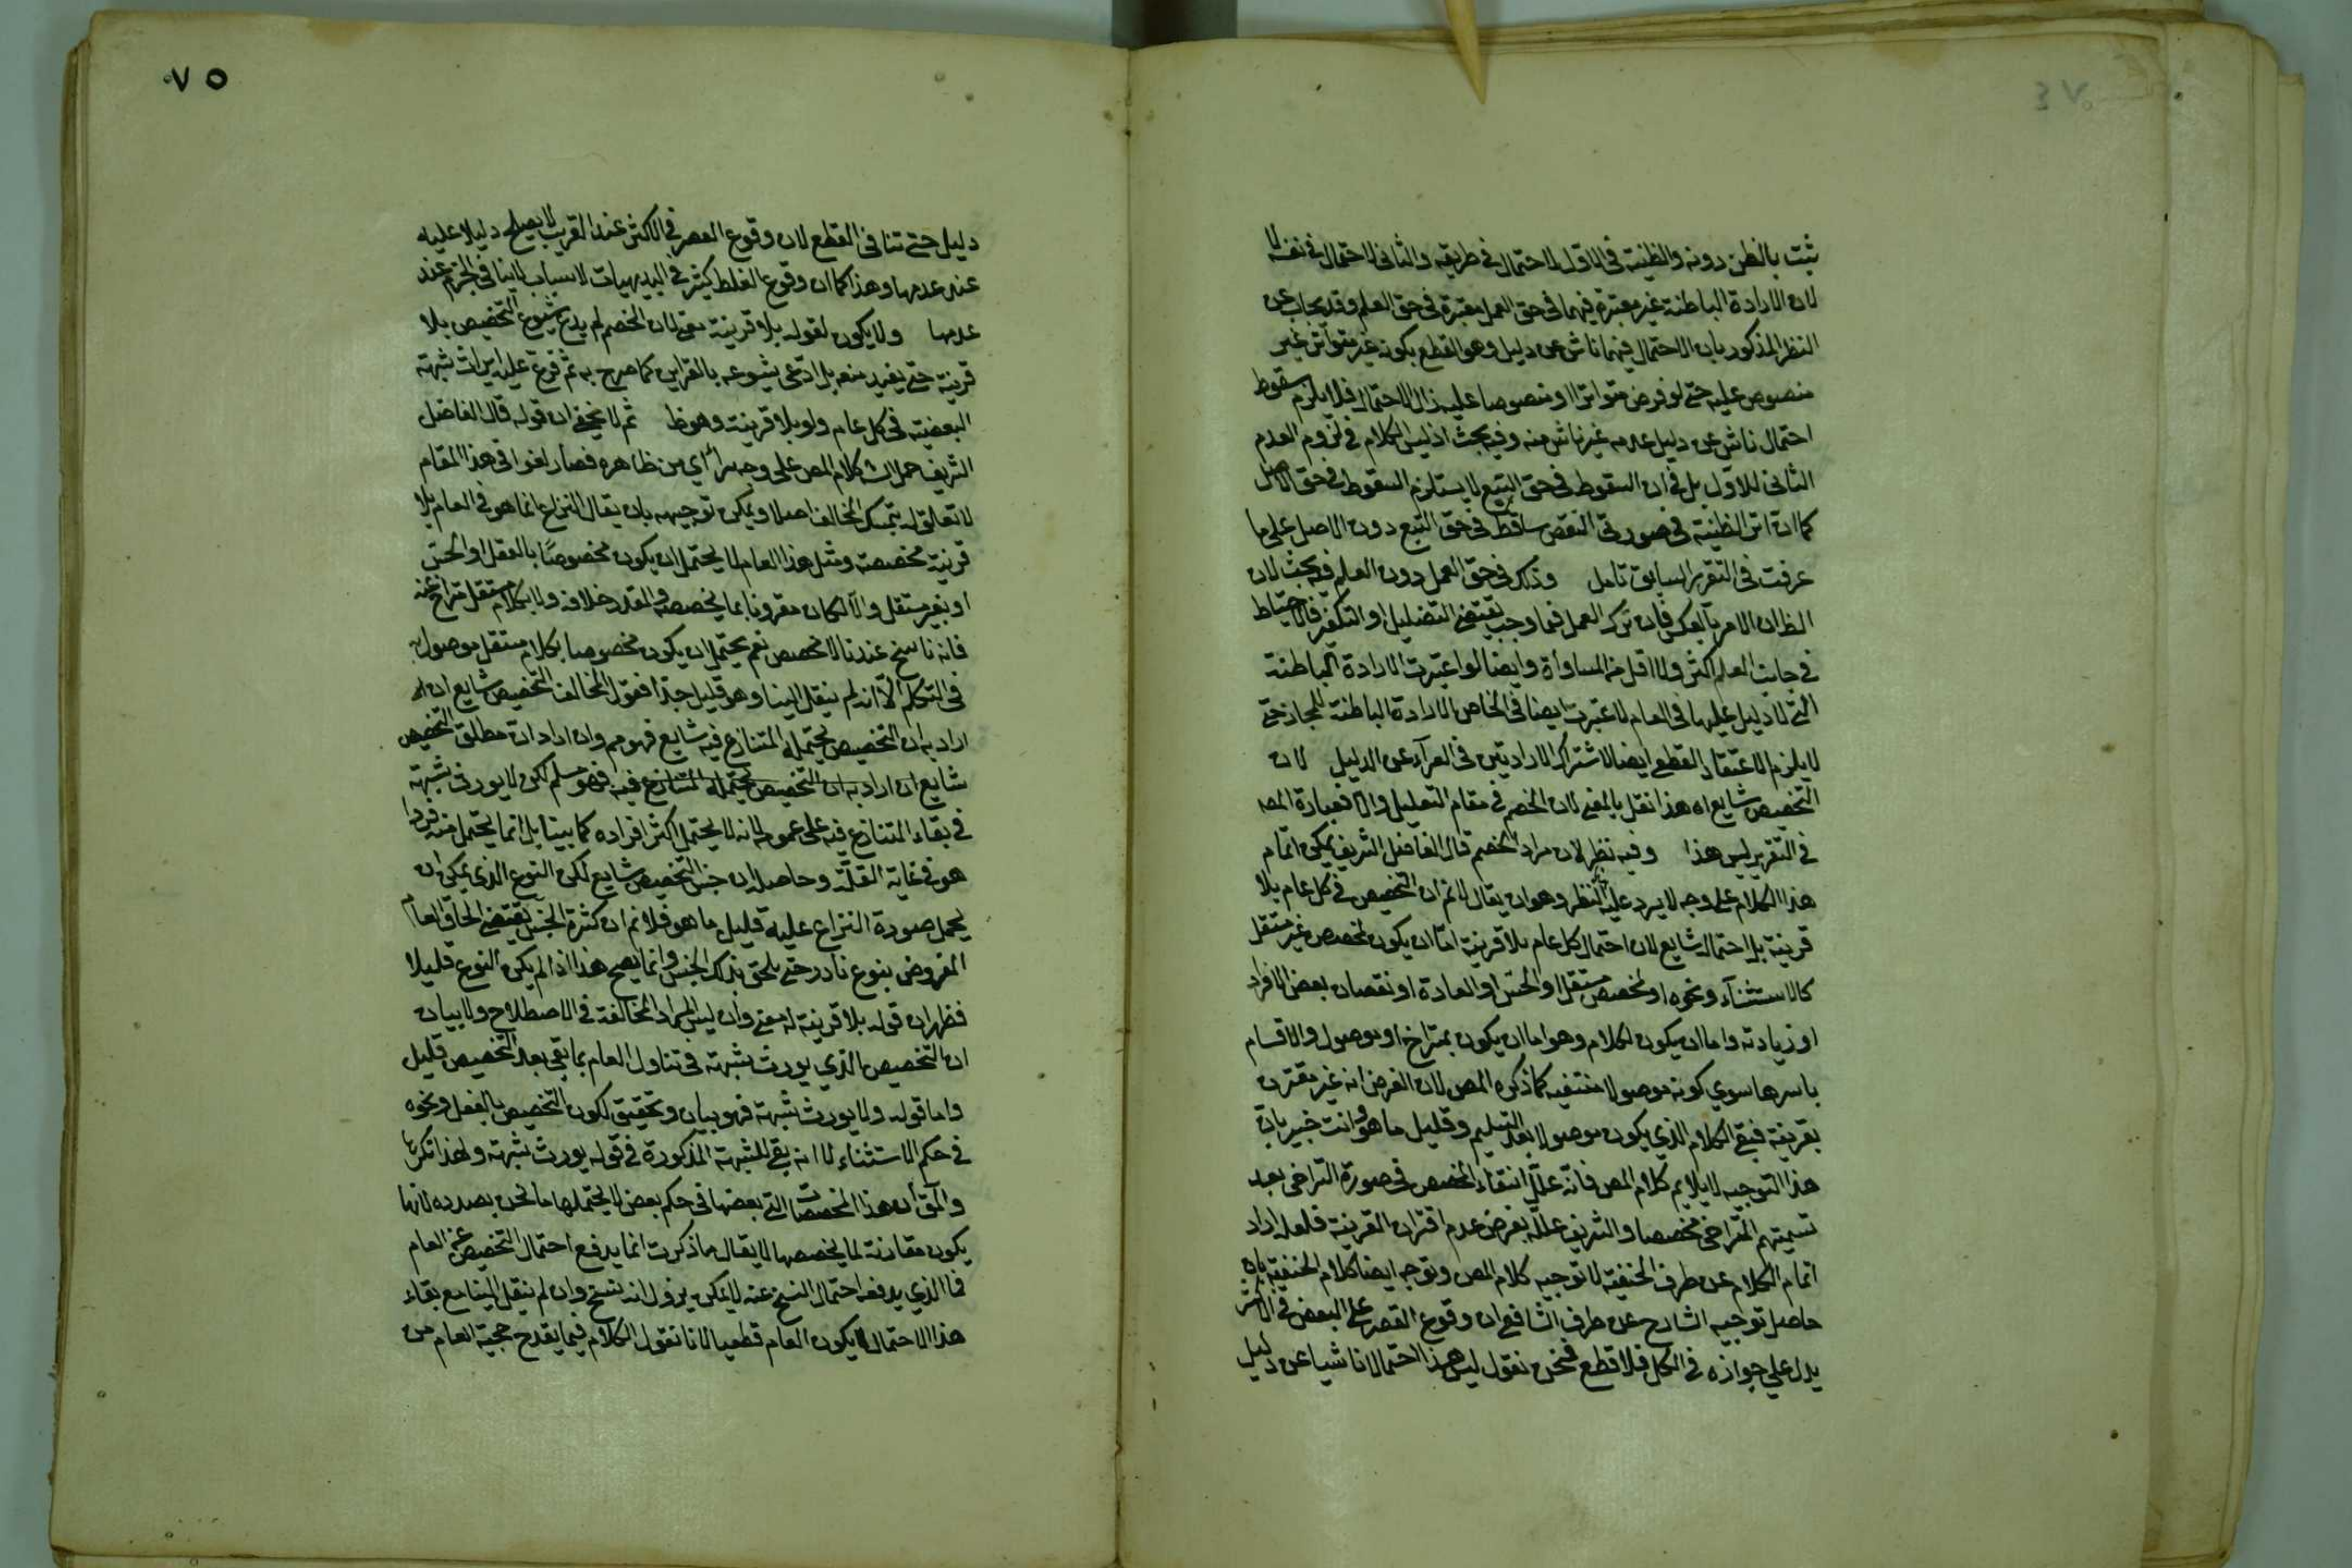 ٧٤
ثبت بالظن دونه والظنية فى الاول لاحتمال فى طريقه والثانى لاحتمال فى نفسه لا
لان الارادة الباطنة غير معتبرة فيهما فى حق العمل معتبرة فى حق العلم وقد يجاب عن
النظر المذكور بان الاحتمال فيهما ناش عن دليل وهو القطع بكونه غير متواتر غير
منصوص عليه حتى لو فرض متواترا او منصوصا عليه زال الاحتمال فلا يلزم سقوط
احتمال ناش عن دليل عدمه غير ناش منه وفيه بحث اذ ليس الكلام فى لزوم العدم
الثانى للاول بل فى ان السقوط فى حق التبع لا يستلزم السقوط فى حق الاصل
كما ان اثر الظنية فى صورتى النقض ساقط فى حق التبع دون الاصل على ما
عرفت فى التقرير السابق تامل وذلك فى حق العمل دون العلم فيه بحث لان
الظ ان الامر بالعكس فان ترك العمل فيما وجب يقتضى التضليل او التكفير فالاحتياط
فى جانب العلم اكثر ولا اقل من المساواة وايضا لو اعتبرت الارادة الباطنة
التى لا دليل عليها فى العام لاعتبرت ايضا فى الخاص الارادة الباطنة للمجاز حتى
لا يلزم الاعتقاد القطعى ايضا لاشتراك الارادتين فى العرآء عن الدليل لان
التخصيص شايع اه هذا نقل بالمعنى لان الخصم فى مقام التعليل والا فعبارة المص
فى التقرير ليس هذا وفيه نظر لان مراد الخصم قال الفاضل الشريف يمكن اتمام
هذا الكلام على وجه لا يرد عليه النظر وهو ان يقال لانم ان التخصيص فى كل عام بلا
قرينة بل احتمال شايع لان احتمال كل عام بلا قرينة اما ان يكون لمخصص غير مستقل
كالاستثنآء ونحوه او لمخصص مستقل او الحس او العادة او نقصان بعض الافراد
او زيادته واما ان يكون الكلام وهو اما ان يكون بمتراخ او موصول والاقسام
باسرها سوى كونه موصولا منتفيه كما ذكره المص لان الفرض انه غير مقترن
بقرينة فبقى الكلام الذى يكون موصولا بعد التسليم وقليل ما هو وانت خبير بان
هذا التوجيه لا يلايم كلام المص فانه علل انتفاء المخصص فى صورة التراخى بعد
تسميتهم المتراخى مخصصا والشريف علله بفرض عدم اقتران القرينة فلعله اراد
اتمام الكلام عن طرف الحنفية لا توجيه كلام المص وتوجه ايضا كلام الحنفية بان
حاصل توجيه الشارح عن طرف الشافعى ان وقوع القصر على البعض فى الاكثر
يدل على جوازه فى الكل فلا قطع فنحن نقول ليس هذا احتمالا ناشيا عن دليل
٧٥
دليل حتى تنافى القطع لان وقوع القصر فى الاكثر عند القريب لا يصلح دليلا عليه
عند عدمها وهذا كما ان وقوع الغلط كثير فى البديهيات لاسباب لا ينافى الجزم عند
عدمها ولا يكون لقوله بلا قرينة معنى لان الخصم لم يدع شيوع التخصيص بلا
قرينة حتى يفيد منعه بل ادعى شيوعه بالقراين كما صرح به ثم فرع عليه ايراث شبهة
البعضية فى كل عام ولو بلا قرينة وهو ظ ثم لا يخفى ان قوله قال الفاضل
الشريف حمل الش كلام المص على وجه يتراأى من ظاهره فصار لغوا فى هذا المقام
لا تعلق له بتمسك المخالف اصلا ويمكن توجيهه بان يقال النزاع انما هو فى العام بلا
قرينة مخصصة ومثل هذا العام لا يحتمل ان يكون مخصوصا بالعقل او الحس
او بغير مستقل والا لكان مقرونا بما يخصصه والمقدر خلافه ولا بكلام مستقل متراخ عنه
فانه ناسخ عندنا لا مخصص نعم يحتمل ان يكون مخصوصا بكلام مستقل موصول به
فى التكلم الا انه لم ينقل الينا وهو قليل جدا فقول المخالف التخصيص شايع ان
اراد به ان التخصيص يحتمله المتنازع فيه شايع فهو مم وان اراد ان مطلق التخصيص
شايع ان اراد به ان التخصيص يحتمله المتنازع فيه فهو مسلم لكن لا يورث شبهة
فى بقاء المتنازع فيه على عمومه لانه لا يحتمل اكثر افراده كما بينا بل انما يحتمل منه فردا
هو فى غاية القلة وحاصله ان جنس التخصيص شايع لكن النوع الذى يمكن ان
يحمل صورة النزاع عليه قليل ما هو فلا نم ان كثرة الجنس يقتضى الحاق العام
المفروض بنوع نادر حتى يلحق بذلك الجنس وانما يصح هذا اذا لم يكن النوع قليلا
فظهر ان قوله بلا قرينة له معنى وان ليس المراد المخالفة فى الاصطلاح ولا بيان
ان التخصيص الذى يورث شبهة فى تناول العام بما بقى بعد التخصيص قليل
واما قوله ولا يورث شبهة فهو بيان وتحقيق لكون التخصيص بالعقل ونحوه
فى حكم الاستثناء لا انه بقى الشبهة المذكورة فى قوله يورث شبهة ولهذا نكرها
والحق ان هذا المخصصات التى بعضها فى حكم بعض لا يحتملها ما نحن بصدده لانها
يكون مقارنة لما يخصصها لا يقال ما ذكرت انما يدفع احتمال التخصيص عن العام
فما الذى يدفع احتمال النسخ عنه لا يمكن يزول انه نسخ وان لم ينقل الينا مع بقاء
هذا الاحتمال لا يكون العام قطعيا لانا نقول الكلام فيما يقدح حجية العام من